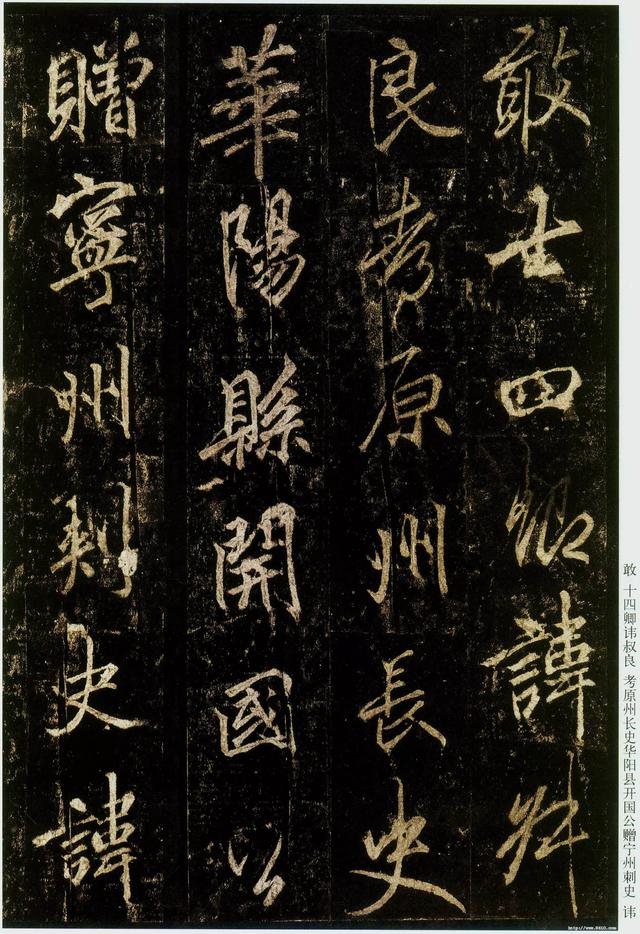 敢四卿諱叔
良考原州長史
華陽縣開國公
贈寧州刺史諱
敢 十四卿讳叔良 考原州长史华阳县开国公赠宁州刺史 讳
http://www.9610.com